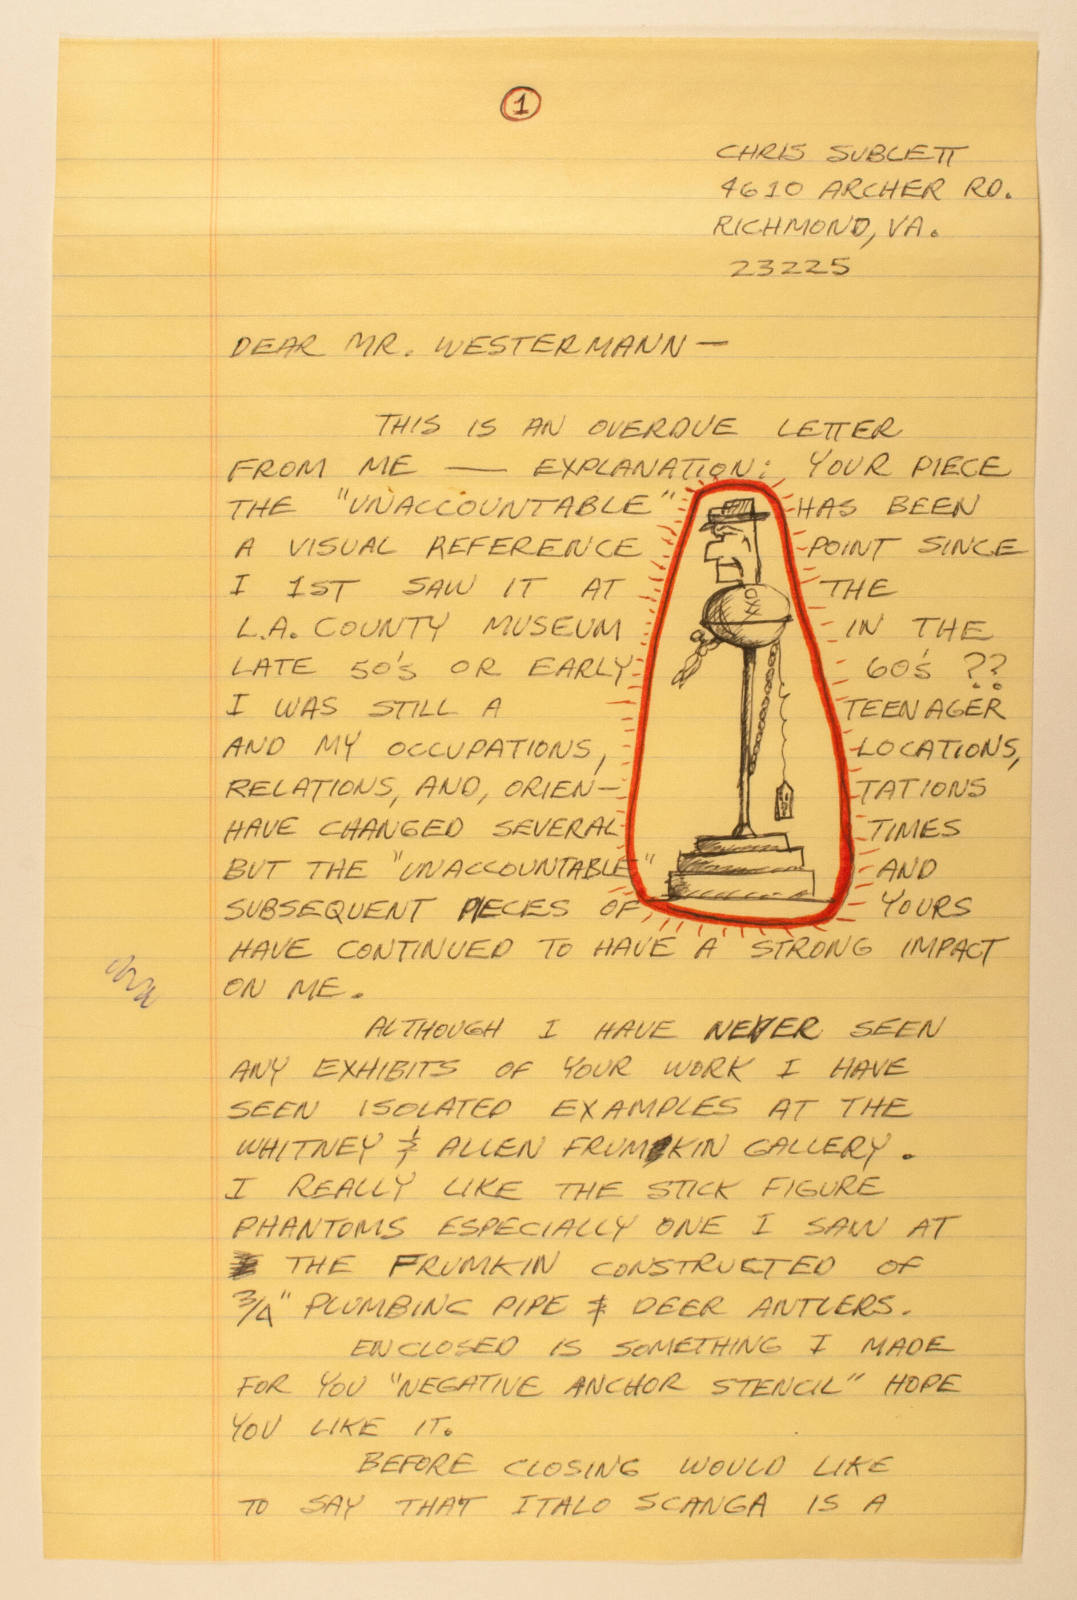 1
CHRIS SUBLETT
4610 ARCHER RD.
RICHMOND, VA.
23225
DEAR MR. WESTERMANN —
THIS IS AN OVERDUE LETTER
FROM ME — EXPLANATION: YOUR PIECE
THE "UNACCOUNTABLE" HAS BEEN
A VISUAL REFERENCE POINT SINCE
I 1ST SAW IT AT THE
L.A. COUNTY MUSEUM IN THE
LATE 50'S OR EARLY 60'S ??
I WAS STILL A TEENAGER
AND MY OCCUPATIONS, LOCATIONS,
RELATIONS, AND, ORIEN— TATIONS
HAVE CHANGED SEVERAL TIMES
BUT THE "UNACCOUNTABLE" AND
SUBSEQUENT PIECES OF YOURS
HAVE CONTINUED TO HAVE A STRONG IMPACT
ON ME.
ALTHOUGH I HAVE NEVER SEEN
ANY EXHIBITS OF YOUR WORK I HAVE
SEEN ISOLATED EXAMPLES AT THE
WHITNEY & ALLEN FRUMKIN GALLERY.
I REALLY LIKE THE STICK FIGURE
PHANTOMS ESPECIALLY ONE I SAW AT
THE FRUMKIN CONSTRUCTED OF
3/4" PLUMBING PIPE & DEER ANTLERS.
ENCLOSED IS SOMETHING I MADE
FOR YOU "NEGATIVE ANCHOR STENCIL" HOPE
YOU LIKE IT.
BEFORE CLOSING WOULD LIKE
TO SAY THAT ITALO SCANGA IS A